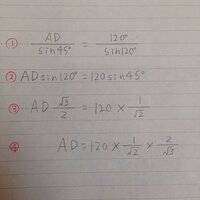 ① AD/sin45° = 120°/sin120°
② AD sin120° = 120 sin45°
③ AD √3/2 = 120 × 1/√2
④ AD = 120 × 1/√2 × 2/√3